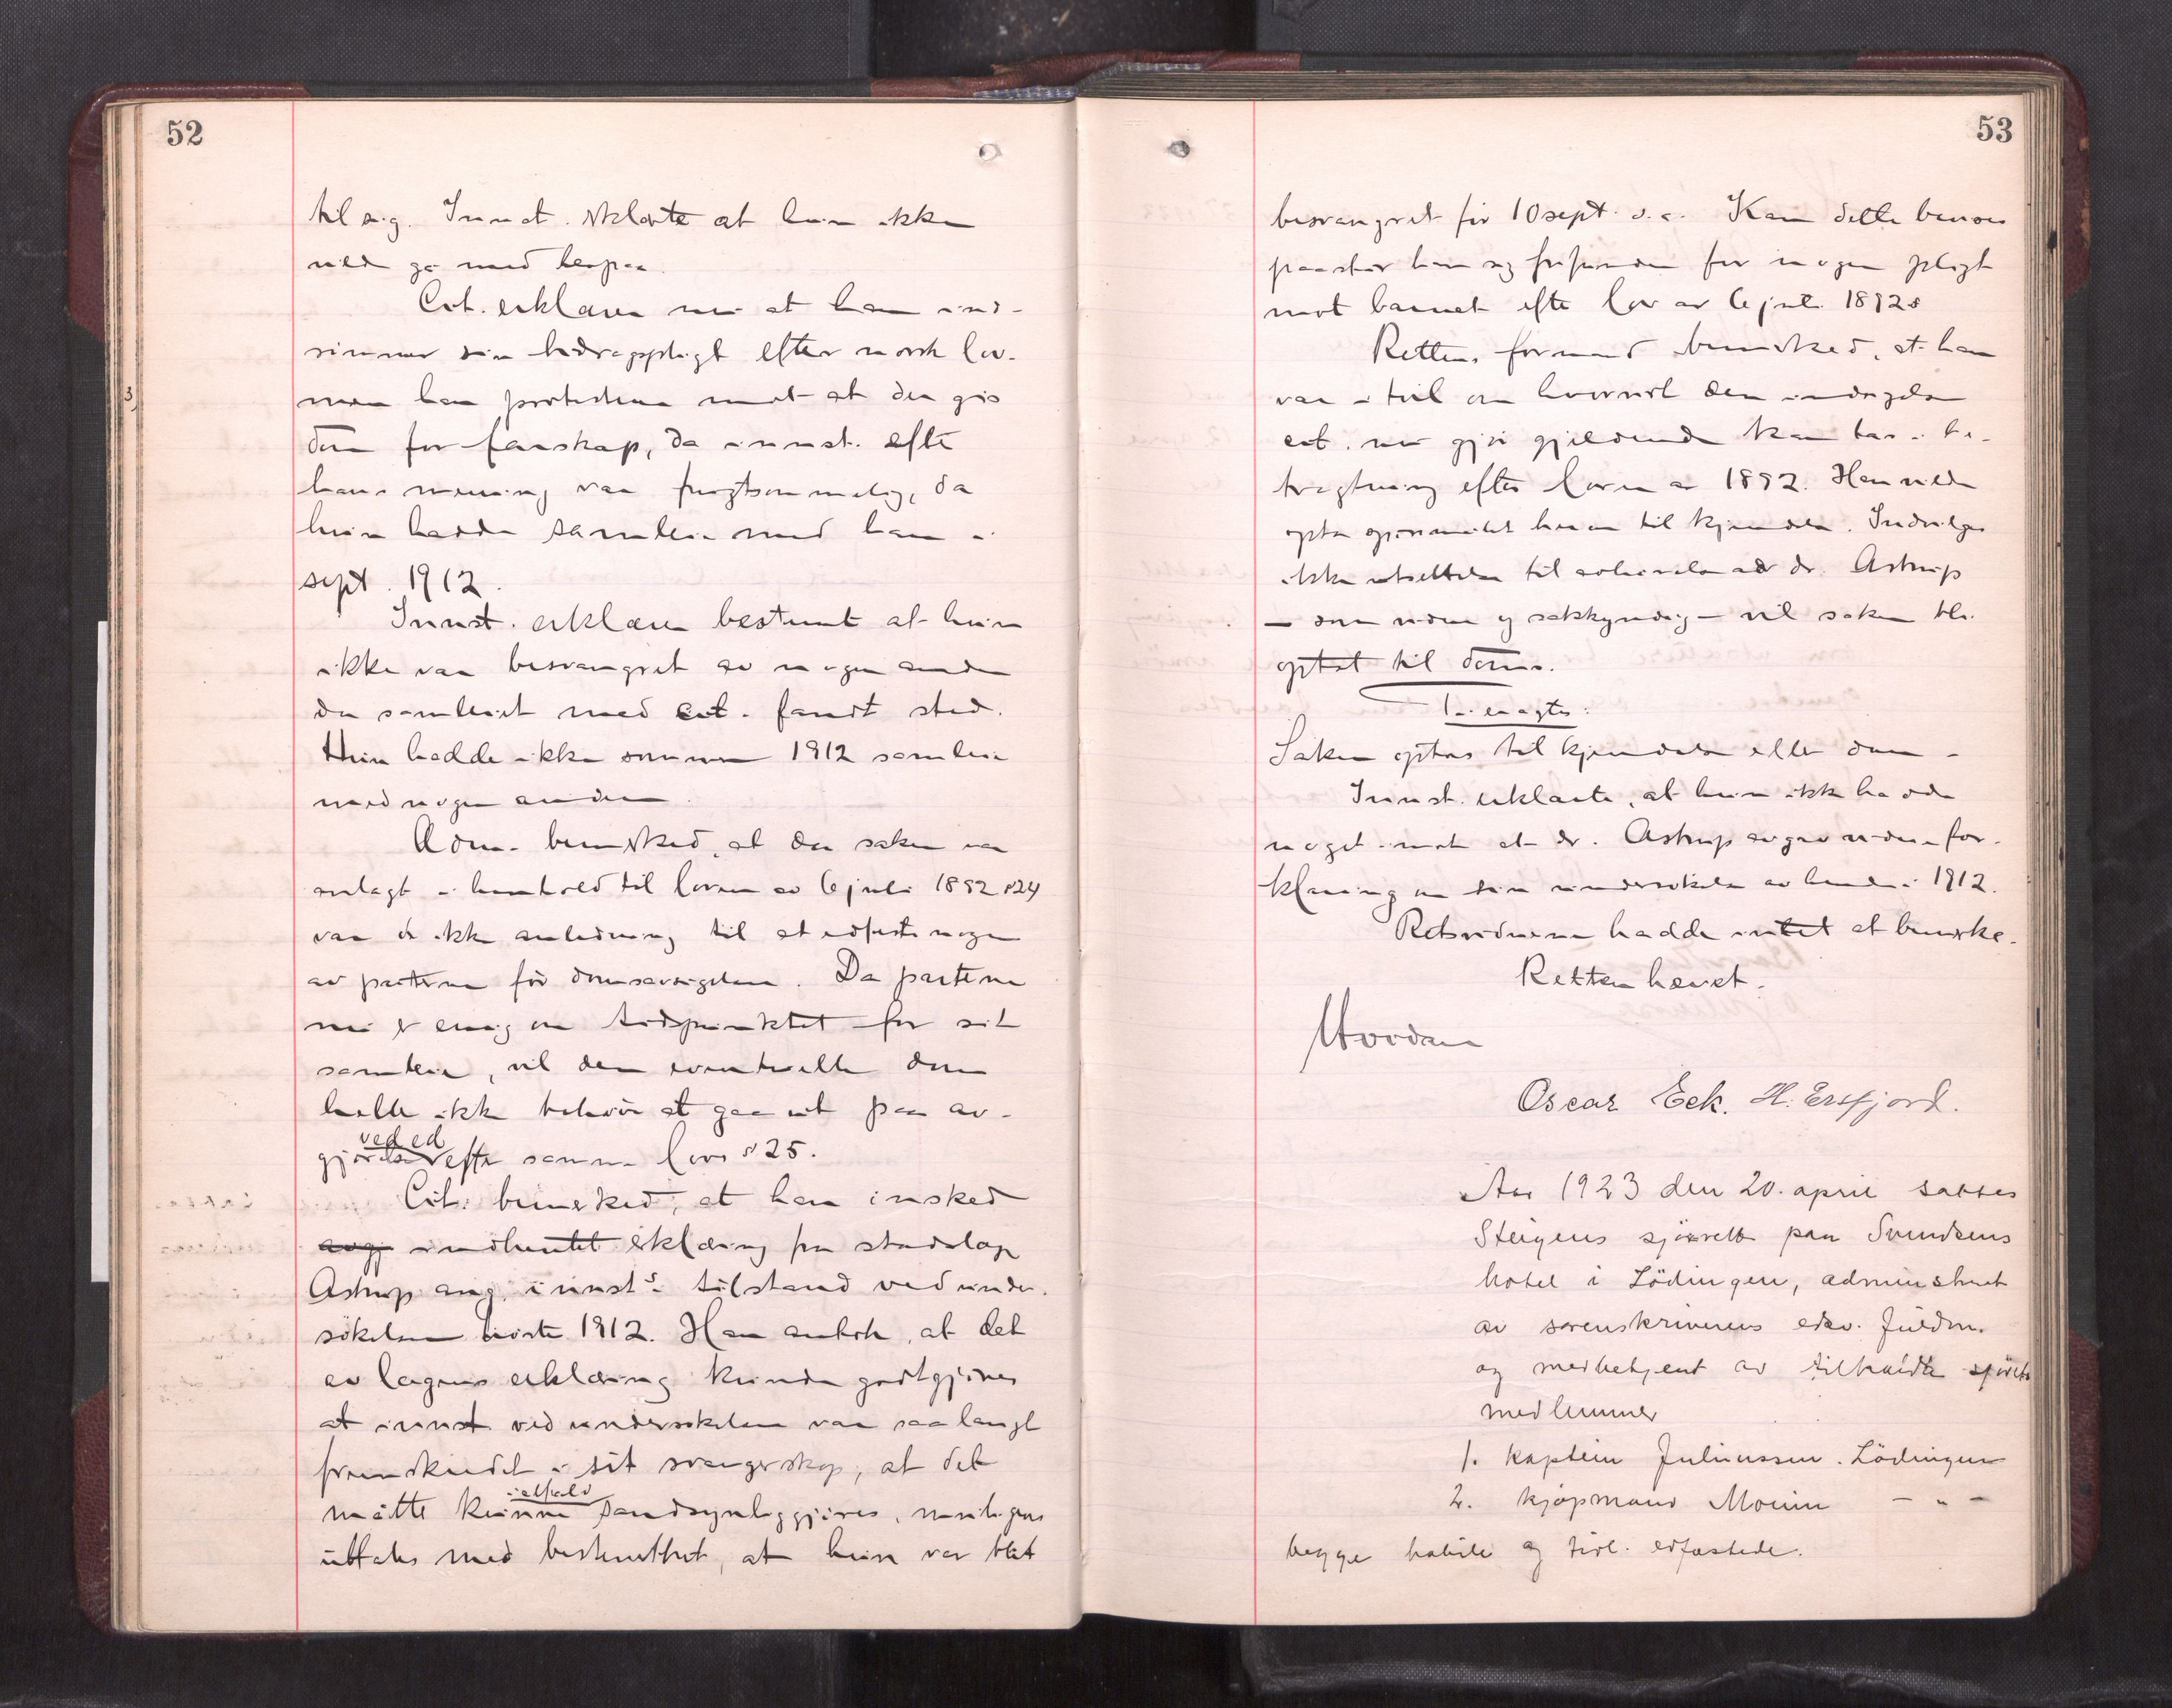 52
til sig. Innst. erklærte at hun ikke
vilde gå med herpaa.
Cit. erklærer nu at han ind-
rimmer sin bidragspligt efter norsk lov.
men han protesterer mot at der gis
dom for farskap, da innst. efter
hans mening var frugtsommelig, da
hun hadde samleie med ham i
sept. 1912.
Innst. erklærer bestemt at hun
ikke var besvangret av nogen anden
da samleiet med cit. fandt sted.
Hun hadde ikke sommeren 1912 samleie
med nogen anden.
Adm. bemerket, at da saken var
anlagt i henhold til loven av 6 juli 1892 §24
var der ikke anledning til at edfæste nogen
av parterne før domsavsigelsen. Da parterne
nu er enig om tidspunktet for sit
samleie, vil den eventuelle dom
heller ikke behøve at gaa ut paa av-
ved ed
gjørelse efter samme lovs §25.
Cit. bemerket, at han ønsket
avgj indhentet erklæring fra stadslæge
Astrup ang. innst.s tilstand ved under-
søkelsen høste 1912. Han antok, at det
av lægens erklæring kunde godtgjøres
at innst. ved undersøkelsen var saa langt
fremskredet i sit svangerskap, at det
ialfald
måtte kunne sandsynliggjøres, muligens
uttales med bestemthet, at hun var blit
53
besvangret før 10 sept. s. a. Kan dette bevises
paastaar han sig frifunden for nogen pligt
mot barnet efter lov av 6 juli 1892
Rettens formand bemerket, at han
var i tvil om hvorvidt den indsigelse
cit. nu gjør gjeldende kan tas i be-
tragtning efter loven av 1892. Han vilde
opta spørsmålet herom til kjendelse. Indvilges
ikke utsettelse til avhørelse av dr. Astrup
— som vidne og sakkyndig — vil saken bli
optat til doms.
Saken optas til kjendelse eller dom.
Innst. erklærte, at hun ikke hadde
noget imot at dr. Astrup avgav vidnefor-
klaring om sin undersøkelse av hende i 1912.
Retsvidnerne hadde intet at bemerke.
Retten hævet.
Oscar Eek. H. Ersfjord.
Aar 1923 den 20. april sattes
Steigens sjørett paa Svendsens
hotel i Lödingen, administrert
av sorenskriverens edsv. fuldm.
og medbetjent av tilkaldte sjørets
medlemmer
1. kaptein Juliussen. Lödingen
2. kjøpmand Moum — " —
begge habile og tidl. edfæstede.